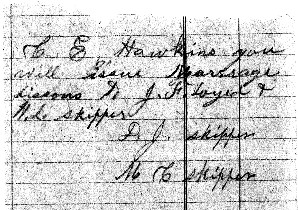 C E Hawkins you
will issue Marrage
lisons to J. F. &
W.L. skipper
D. J. skipper
M C skipper